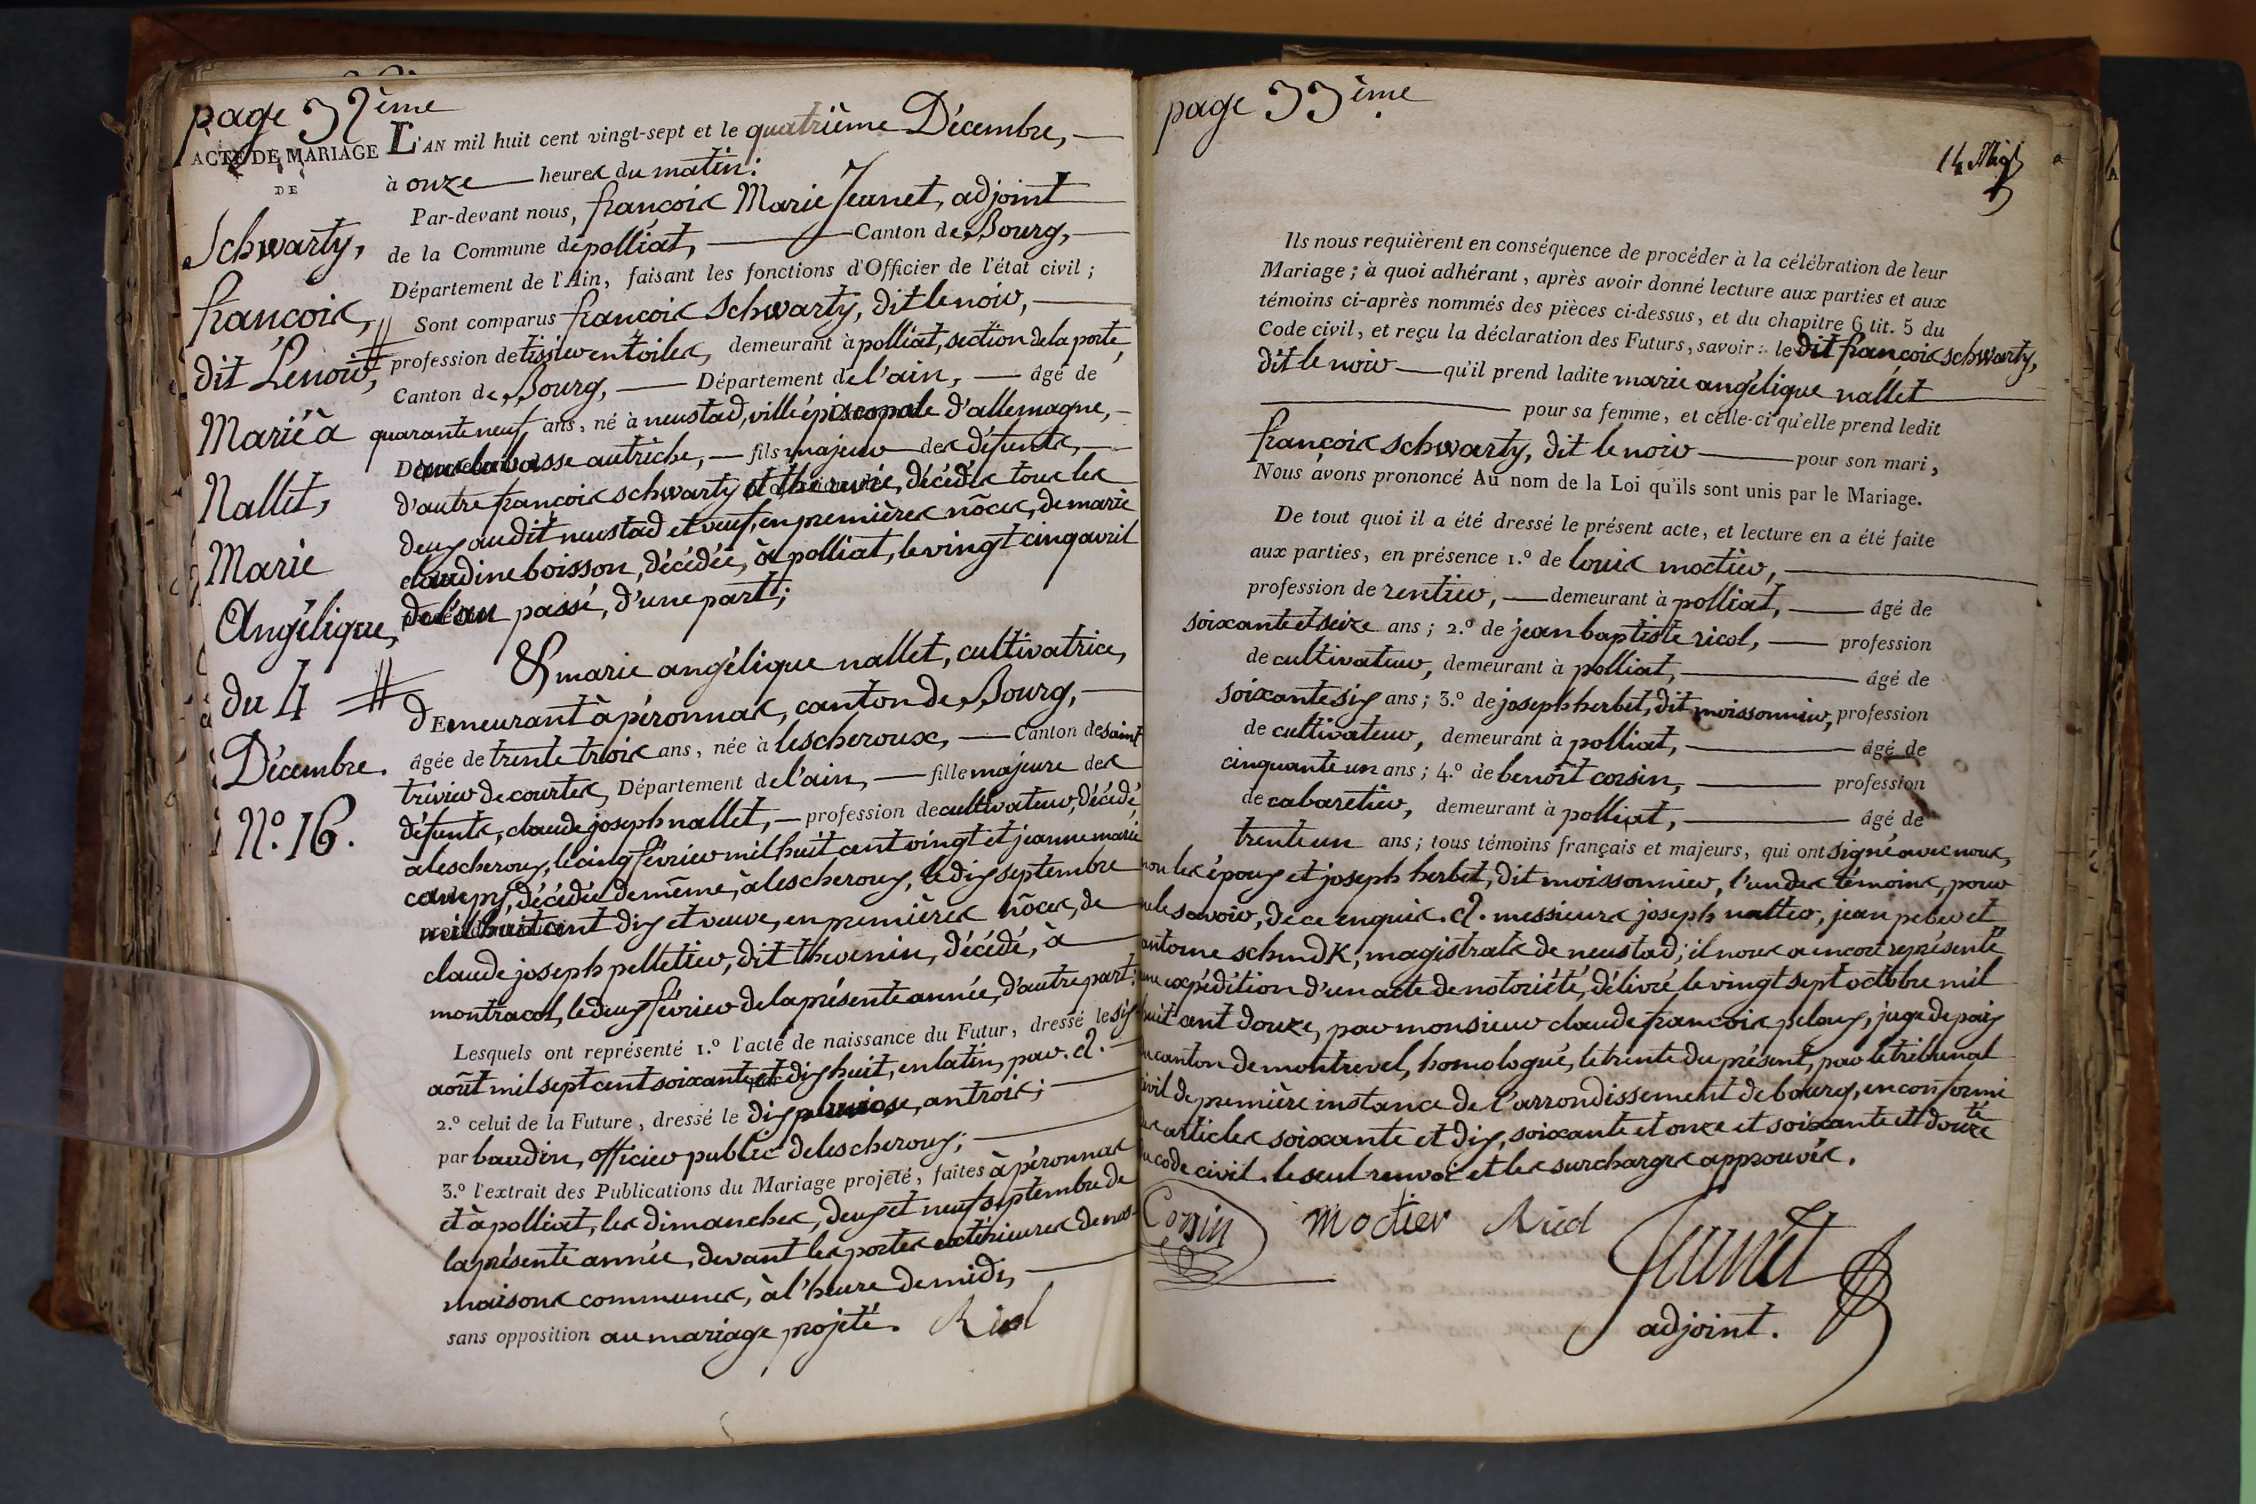 page 32ème
ACTE DE MARIAGE
DE
Schwarty,
françois,
dit Lenoir,
Marié à
Nallet,
Marie
Angélique,
du 4
Décembre.
N.o 16.
L'AN mil huit cent vingt-sept et le quatrième Décembre,
à onze heures du matin:
Par-devant nous, françois Marie Jeunet, adjoint
de la Commune de polliat, Canton de Bourg,
Département de l'Ain, faisant les fonctions d'Officier de l'état civil ;
Sont comparus françois Schwarty, dit lenoir,
profession de tissier en toiles, demeurant à polliat, section de la porte,
Canton de Bourg, Département de l'ain, âgé de
quarante neuf ans, né à neustad, ville épiscopale d'allemagne,
dans la basse autriche, fils majeur des défunts,
d'autre françois schwarty et thérésie, décédés tous les
deux audit neustad et veuf, en premières nôces, de marie
claudine boisson, décédée, à polliat, le vingt cinq avril
de l'an passé, d'une part;
Et marie angélique nallet, cultivatrice,
DEmeurant à péronnas, canton de Bourg,
âgée de trente trois ans, née à lescheroux, Canton de saint
trivier de courtes, Département de l'ain, fille majeure des
défunts, claude joseph nallet, profession de cultivateur, décédé,
à lescheroux, le cinq février mil huit cent vingt et jeanne marie
décédée de même, à lescheroux, le dix septembre
mil huit cent dix et veuve, en premières nôces, de
claude joseph pelletier, dit thevenin, décédé, à
montracol, le deux février de la présente année, d'autre part;
Lesquels ont représenté 1.o l'acte de naissance du Futur, dressé le six
août mil sept cent soixante et dix huit, en latin, par. a.
2.o celui de la Future, dressé le dix pluviose, an trois;
par baudin, officier public de lescheroux;
3.o l'extrait des Publications du Mariage projeté, faites à péronnas
et à polliat, les dimanches, deux et neuf septembre de
la présente année, devant les portes extérieures de nos
maisons communes, à l'heure de midi,
sans opposition au mariage projeté. Ricol
page 33ème
Ils nous requièrent en conséquence de procéder à la célébration de leur
Mariage ; à quoi adhérant, après avoir donné lecture aux parties et aux
témoins ci-après nommés des pièces ci-dessus, et du chapitre 6 tit. 5 du
Code civil, et reçu la déclaration des Futurs, savoir : le dit françois schwarty,
dit le noir qu'il prend ladite marie angélique nallet
pour sa femme, et celle-ci qu'elle prend ledit
françois schwarty, dit le noir pour son mari,
Nous avons prononcé Au nom de la Loi qu'ils sont unis par le Mariage.
De tout quoi il a été dressé le présent acte, et lecture en a été faite
aux parties, en présence 1.o de louis moctier,
profession de rentier, demeurant à polliat, âgé de
soixante et seize ans ; 2.o de jean baptiste ricol, profession
de cultivateur, demeurant à polliat, âgé de
soixante six ans ; 3.o de joseph herbet, dit moissonnier, profession
de cultivateur, demeurant à polliat, âgé de
cinquante un ans ; 4.o de benoît corsin, profession
de cabaretier, demeurant à polliat, âgé de
trente un ans ; tous témoins français et majeurs, qui ont signé avec nous,
non les époux et joseph herbet, dit moissonnier, l'un des témoins, pour
ne le savoir, de ce enquis. a. messieurs joseph natter, jean peber et
antoine schmdk, magistrats de neustad; il nous a encore représenté
une expédition d'un acte de notoriété, délivré le vingt sept octobre mil
huit cent douze, par monsieur claude françois peloux, juge de paix
du canton de montrevel, homologué, le trente du présent, par le tribunal
civil de première instance de l'arrondissement de bourg, en conformité
des articles soixante et dix, soixante et onze et soixante et douze
du code civil. le seul renvoi et les surcharges approuvés.
Corsin moctier Ricol
Jeunet
adjoint.